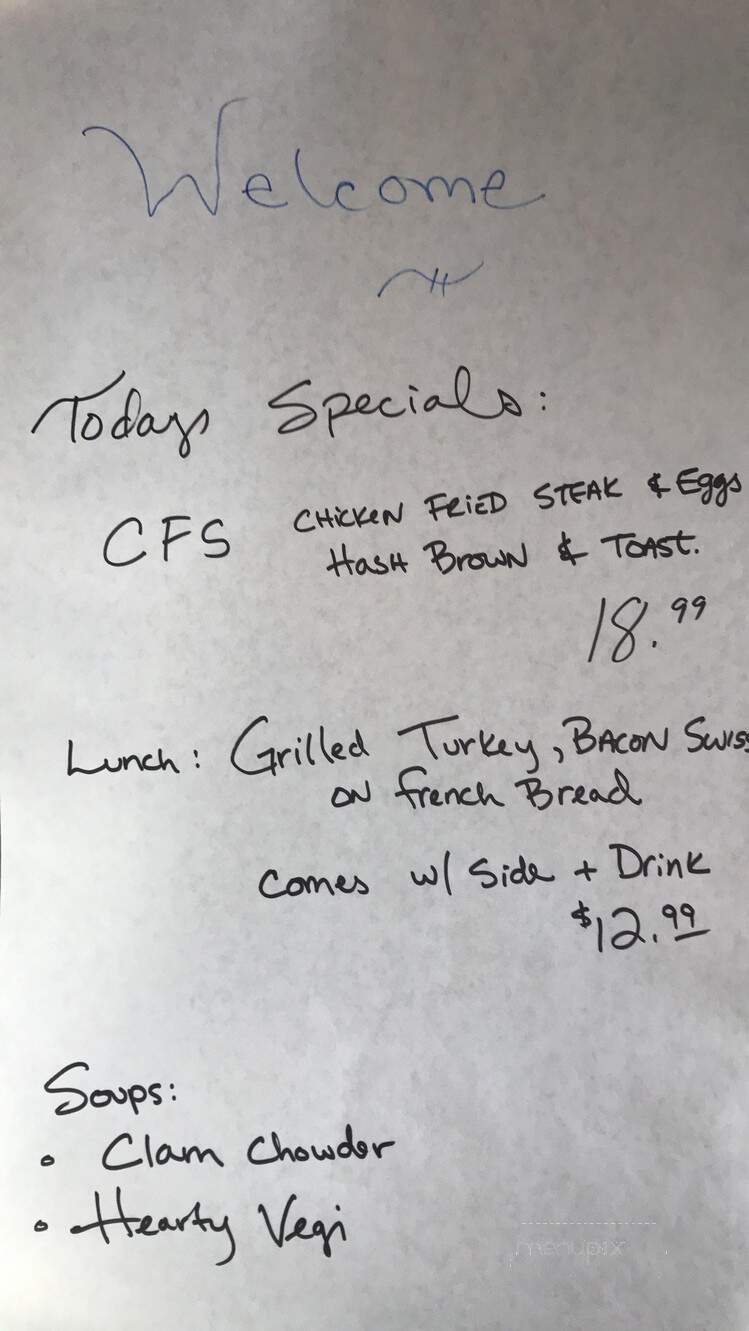 Welcome
Todays Specials:
CFS CHICKEN FRIED STEAK & Eggs
HASH BROWN & TOAST.
18.99
Lunch: Grilled Turkey, BACON Swiss
ON french Bread
Comes w/ Side + Drink
$12.99
Soups:
• Clam Chowder
• Hearty Vegi
menupix